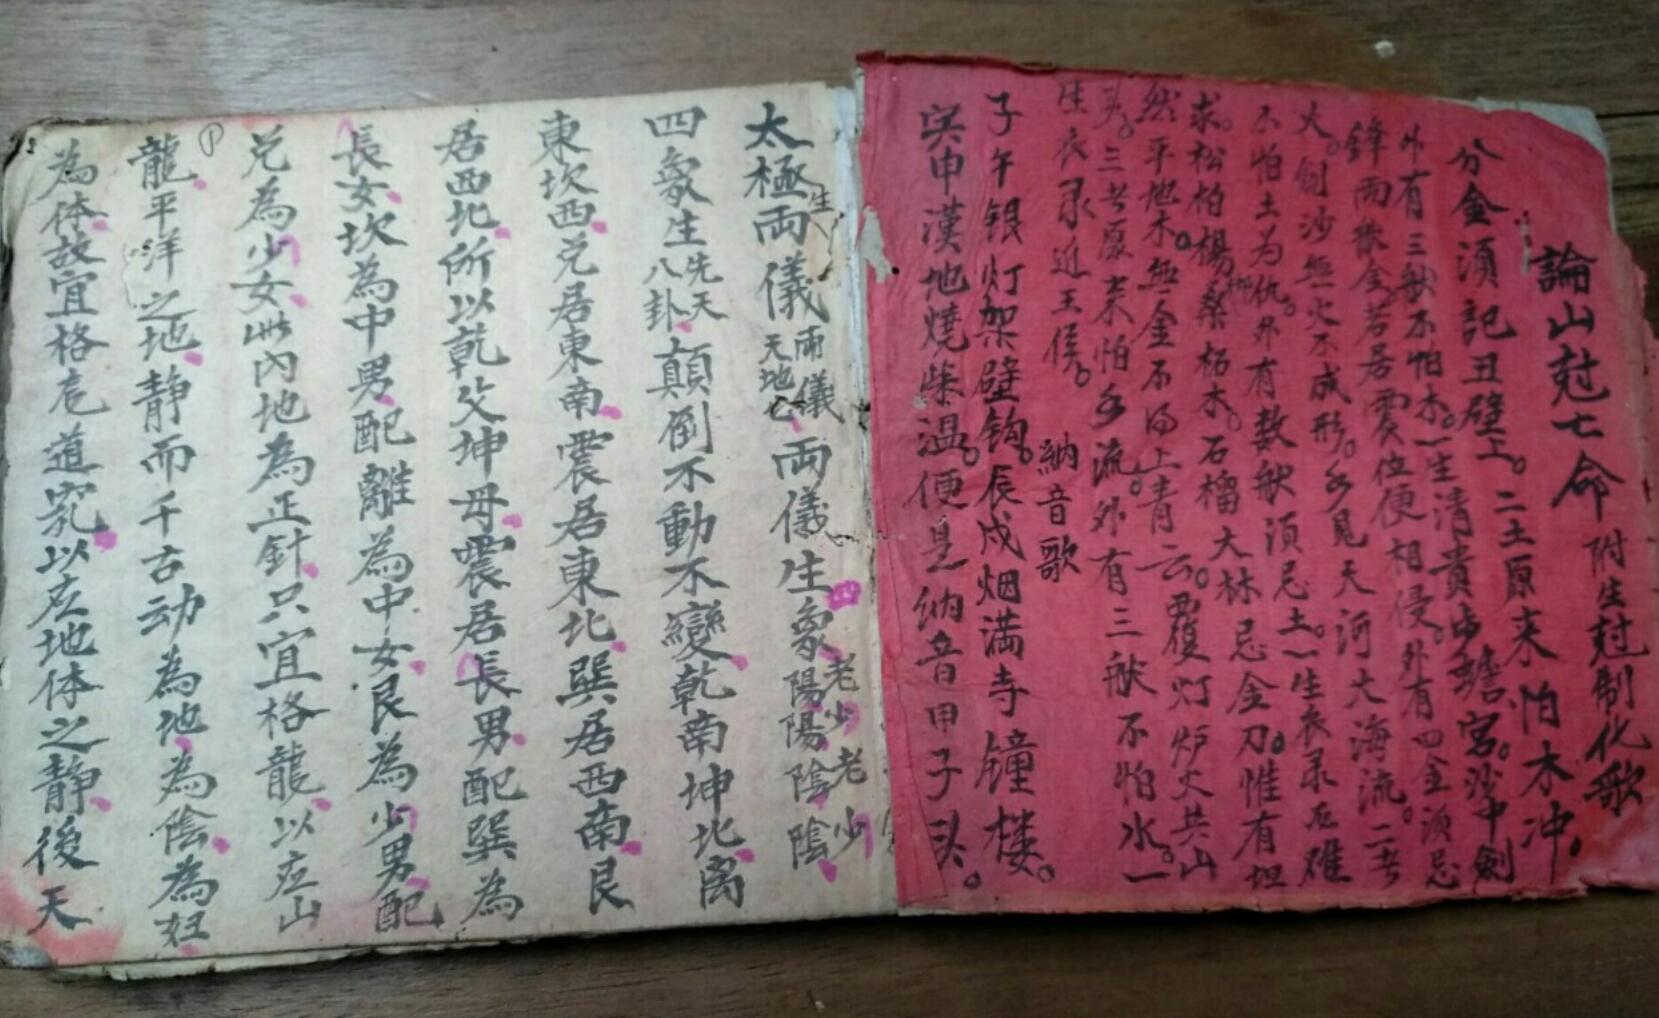 論山尅亡命 附生尅制化歌
分金須記丑壁上。二土原来怕木冲。
外有三般不怕木。一生清貴步蟾宮。沙中劍
鋒両般金。若居震位便相侵。外有四金須忌
火。劍沙無火不成形。水見天河大海流。二者
不怕土为仇。外有数般須忌土。一生衣录必难
求。松柏楊柳桑柘木。石榴大林忌金刀。惟有坦
然平地木。無金不得上青云。覆灯炉火共山
头。三者原来怕水流。外有三般不怕水。一
生衣录近王侯。
納音歌
子午银灯架壁钩。辰戌烟满寺鐘楼。
寅申漢地燒柴温。便是纳音甲子头。
太極生両儀 両儀天地也 両儀生四象 老陽少陽老陰少陰
四象生先天八卦 顛倒不動不變乾南坤北离
東坎西兑居東南震居東北巽居西南艮
居西北所以乾父坤母震居長男配巽為
長女坎為中男配離為中女艮為少男配
兑為少女此內地為正針只宜格龍以在山
龍平洋之地静而千古动為地為陰為妇
為体故宜格龙道穷以在地体之静後天